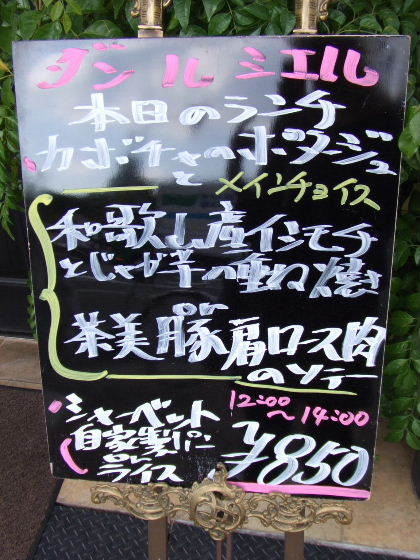 ダン ル シエル
本日のランチ
カボチャのポタージュ
と メインチョイス
和歌し産イシモチ
とじゃが芋の重ね焼き
or
茶美豚肩ロース肉
のソテー
12:00
〜14:00
シャーベント
自家製パン
or
ライス
¥850